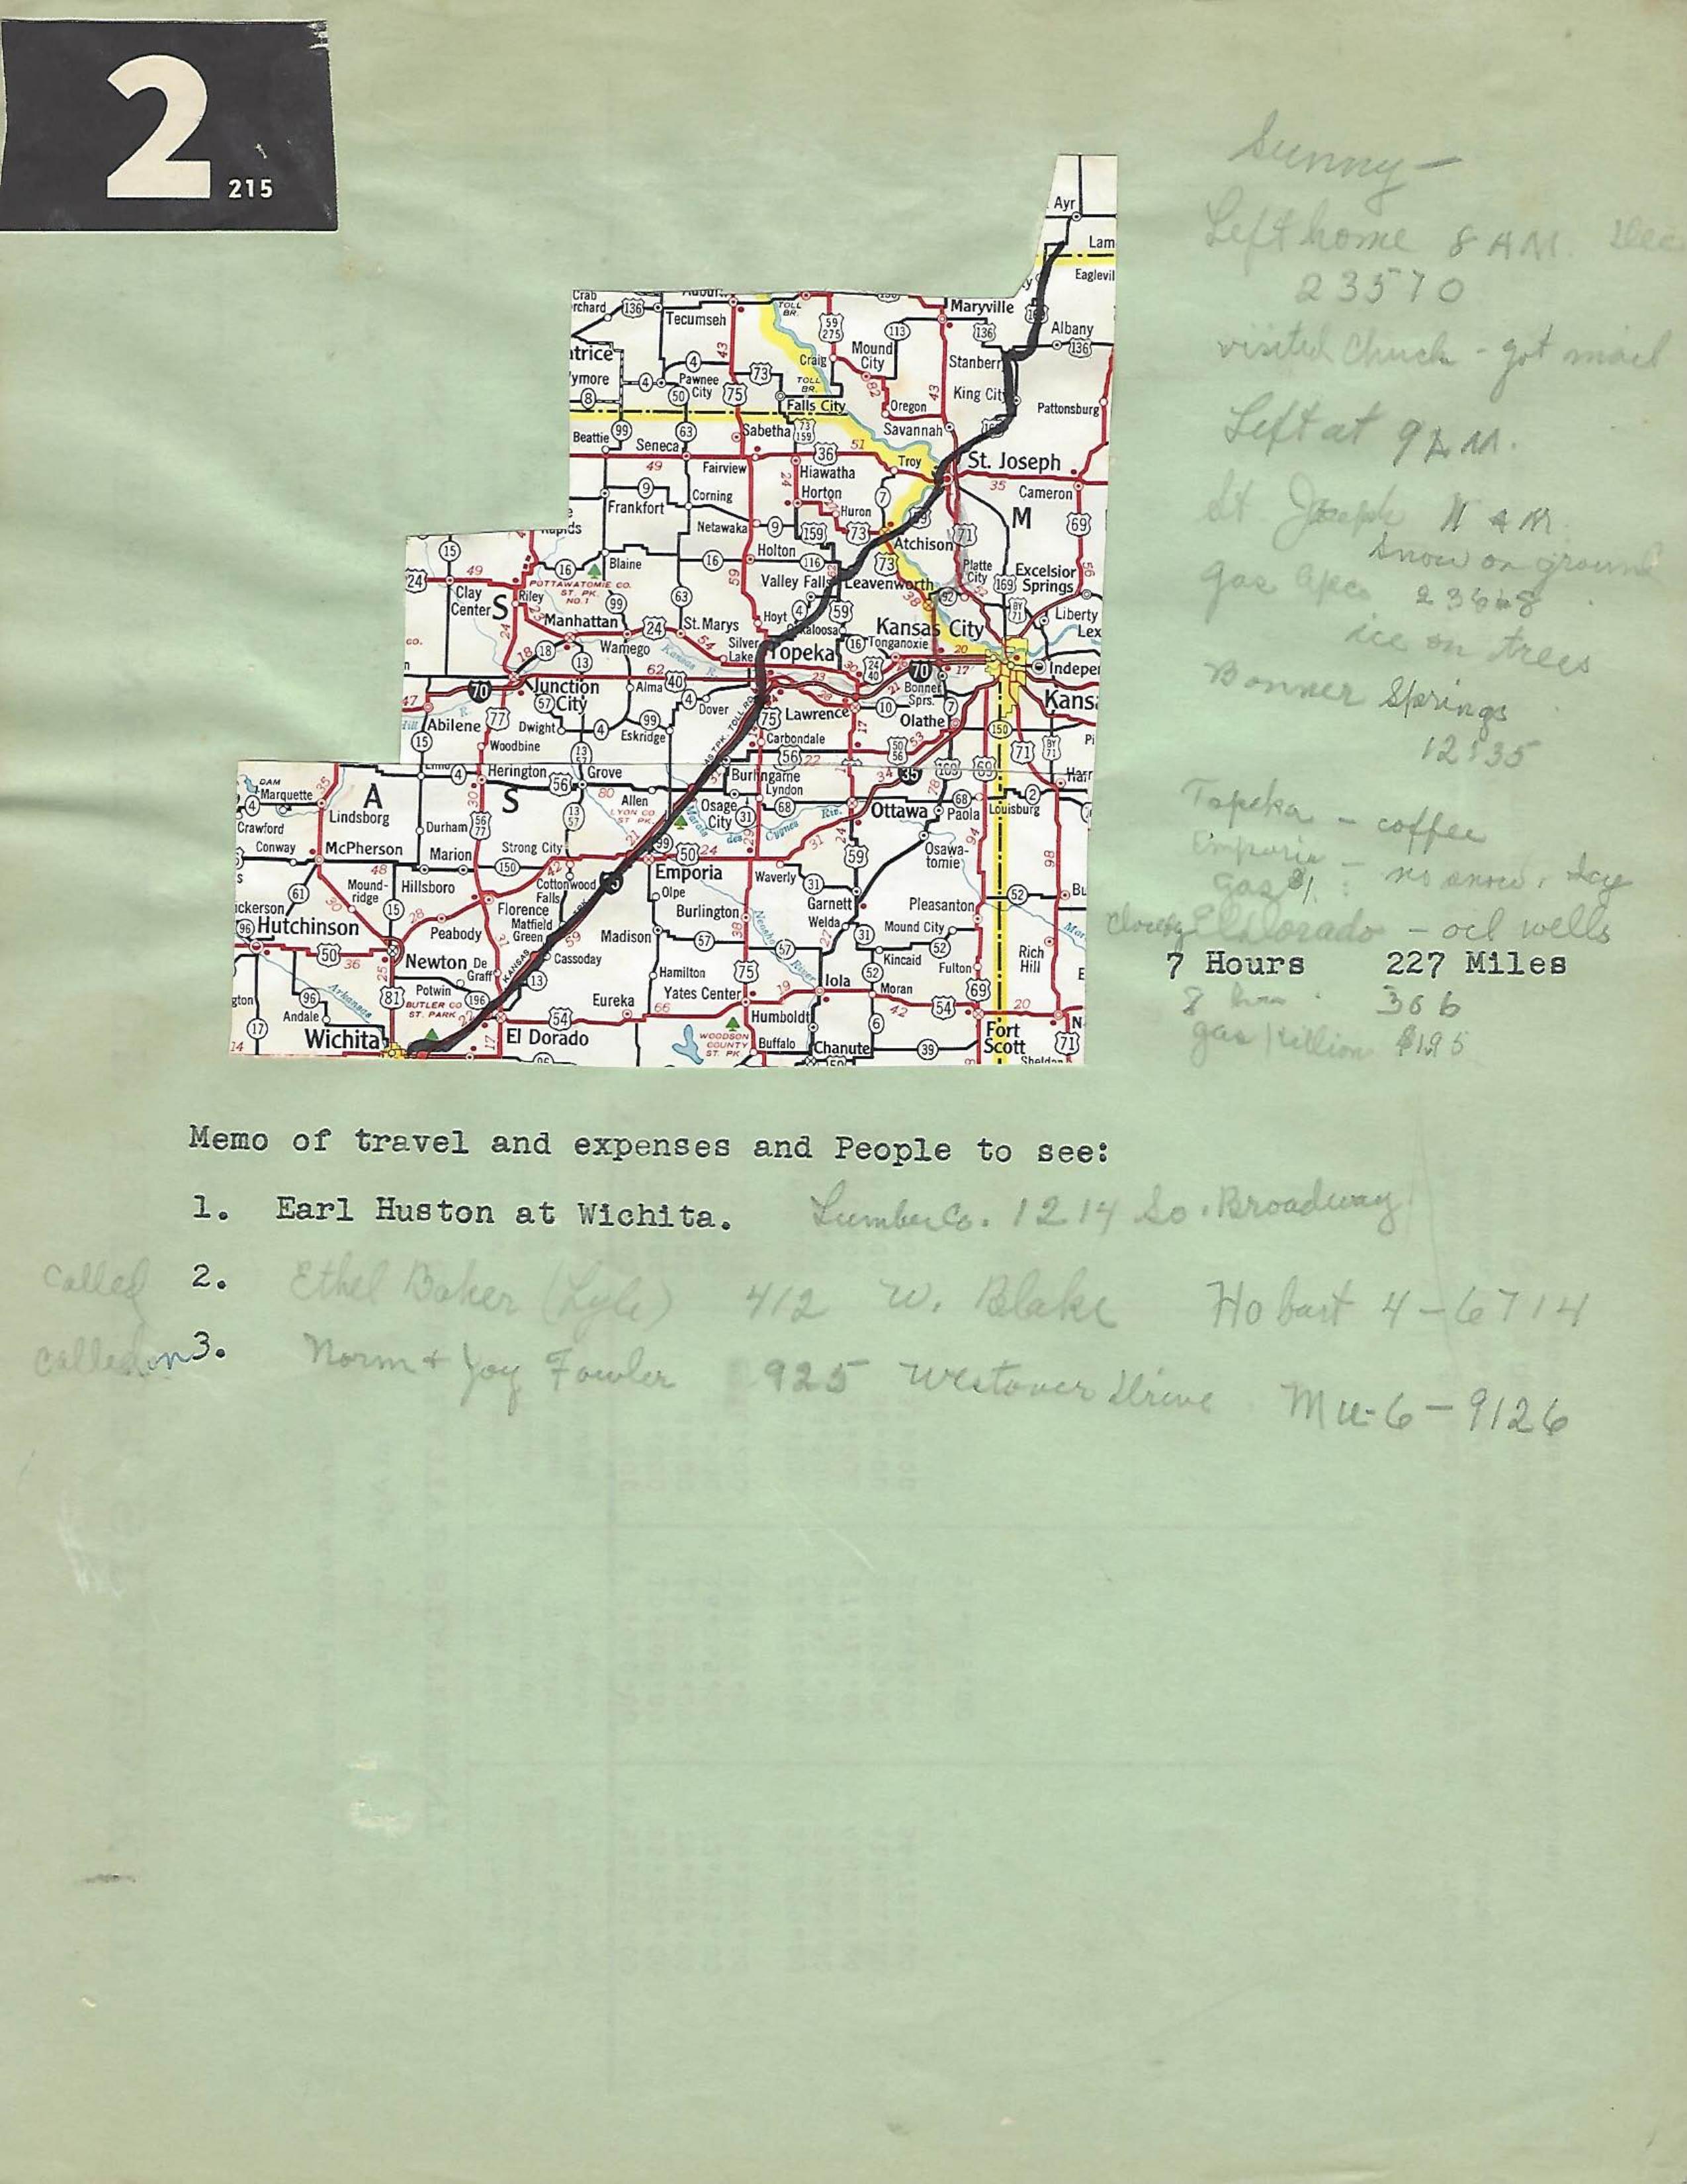 2
215
Sunny —
Left home 8 AM. Dec
23570
visited Church - got mail
Left at 9 A M.
St Joseph 11 AM
Snow on ground
gas
ice on trees
Bonner Springs
12:35
Topeka — coffee
Emporia — no snow, Icy
gas $1
El Dorado — oil wells
7 Hours 227 Miles
8 hrs. 306
gas $1.95
Ayr
Lam
Eaglevil
Maryville
Tecumseh
Albany
Mound City
Craig
Stanberr
Pawnee City
King City
Falls City
Oregon
Pattonsburg
Savannah
Beattie
Seneca
Sabetha
Troy
St. Joseph
Fairview
Hiawatha
Cameron
Horton
Frankfort
Corning
Huron
M
Netawaka
Atchison
Holton
Blaine
Platte City
Excelsior Springs
Valley Falls
Leavenworth
POTTAWATOMIE CO. ST. PK. NO. 1
Clay Center
S
Riley
Liberty
Manhattan
St. Marys
Hoyt
Kansas City
Wamego
Silver Lake
Topeka
Tonganoxie
Indeper
Junction City
Alma
Bonner Sprs.
Kansa
Dover
Lawrence
Olathe
Abilene
Dwight
Eskridge
Carbondale
Woodbine
Herington
Grove
Burlingame
Marquette
A
S
Allen
Lyndon
Lindsborg
LYON CO. ST. PK.
Osage City
Ottawa
Paola
Louisburg
Crawford
Durham
Conway
McPherson
Marion
Strong City
Osawatomie
Emporia
Moundridge
Hillsboro
Cottonwood Falls
Waverly
Olpe
Garnett
Florence
Burlington
Pleasanton
Hutchinson
Matfield Green
Welda
Mound City
Peabody
Madison
Newton
De Graff
Cassoday
Kincaid
Rich Hill
Hamilton
Fulton
Potwin
Yates Center
Iola
Moran
BUTLER CO ST. PARK
Eureka
Andale
Humboldt
Wichita
El Dorado
WOODSON COUNTY ST. PK
Buffalo
Chanute
Fort Scott
Memo of travel and expenses and People to see:
1. Earl Huston at Wichita. Lumber Co. 1214 So. Broadway
called 2. Ethel Baker (Lyle) 412 W. Blake Hobart 4-6714
called on 3. Norm + Joy Fowler 925 Westover Drive Mu-6-9126